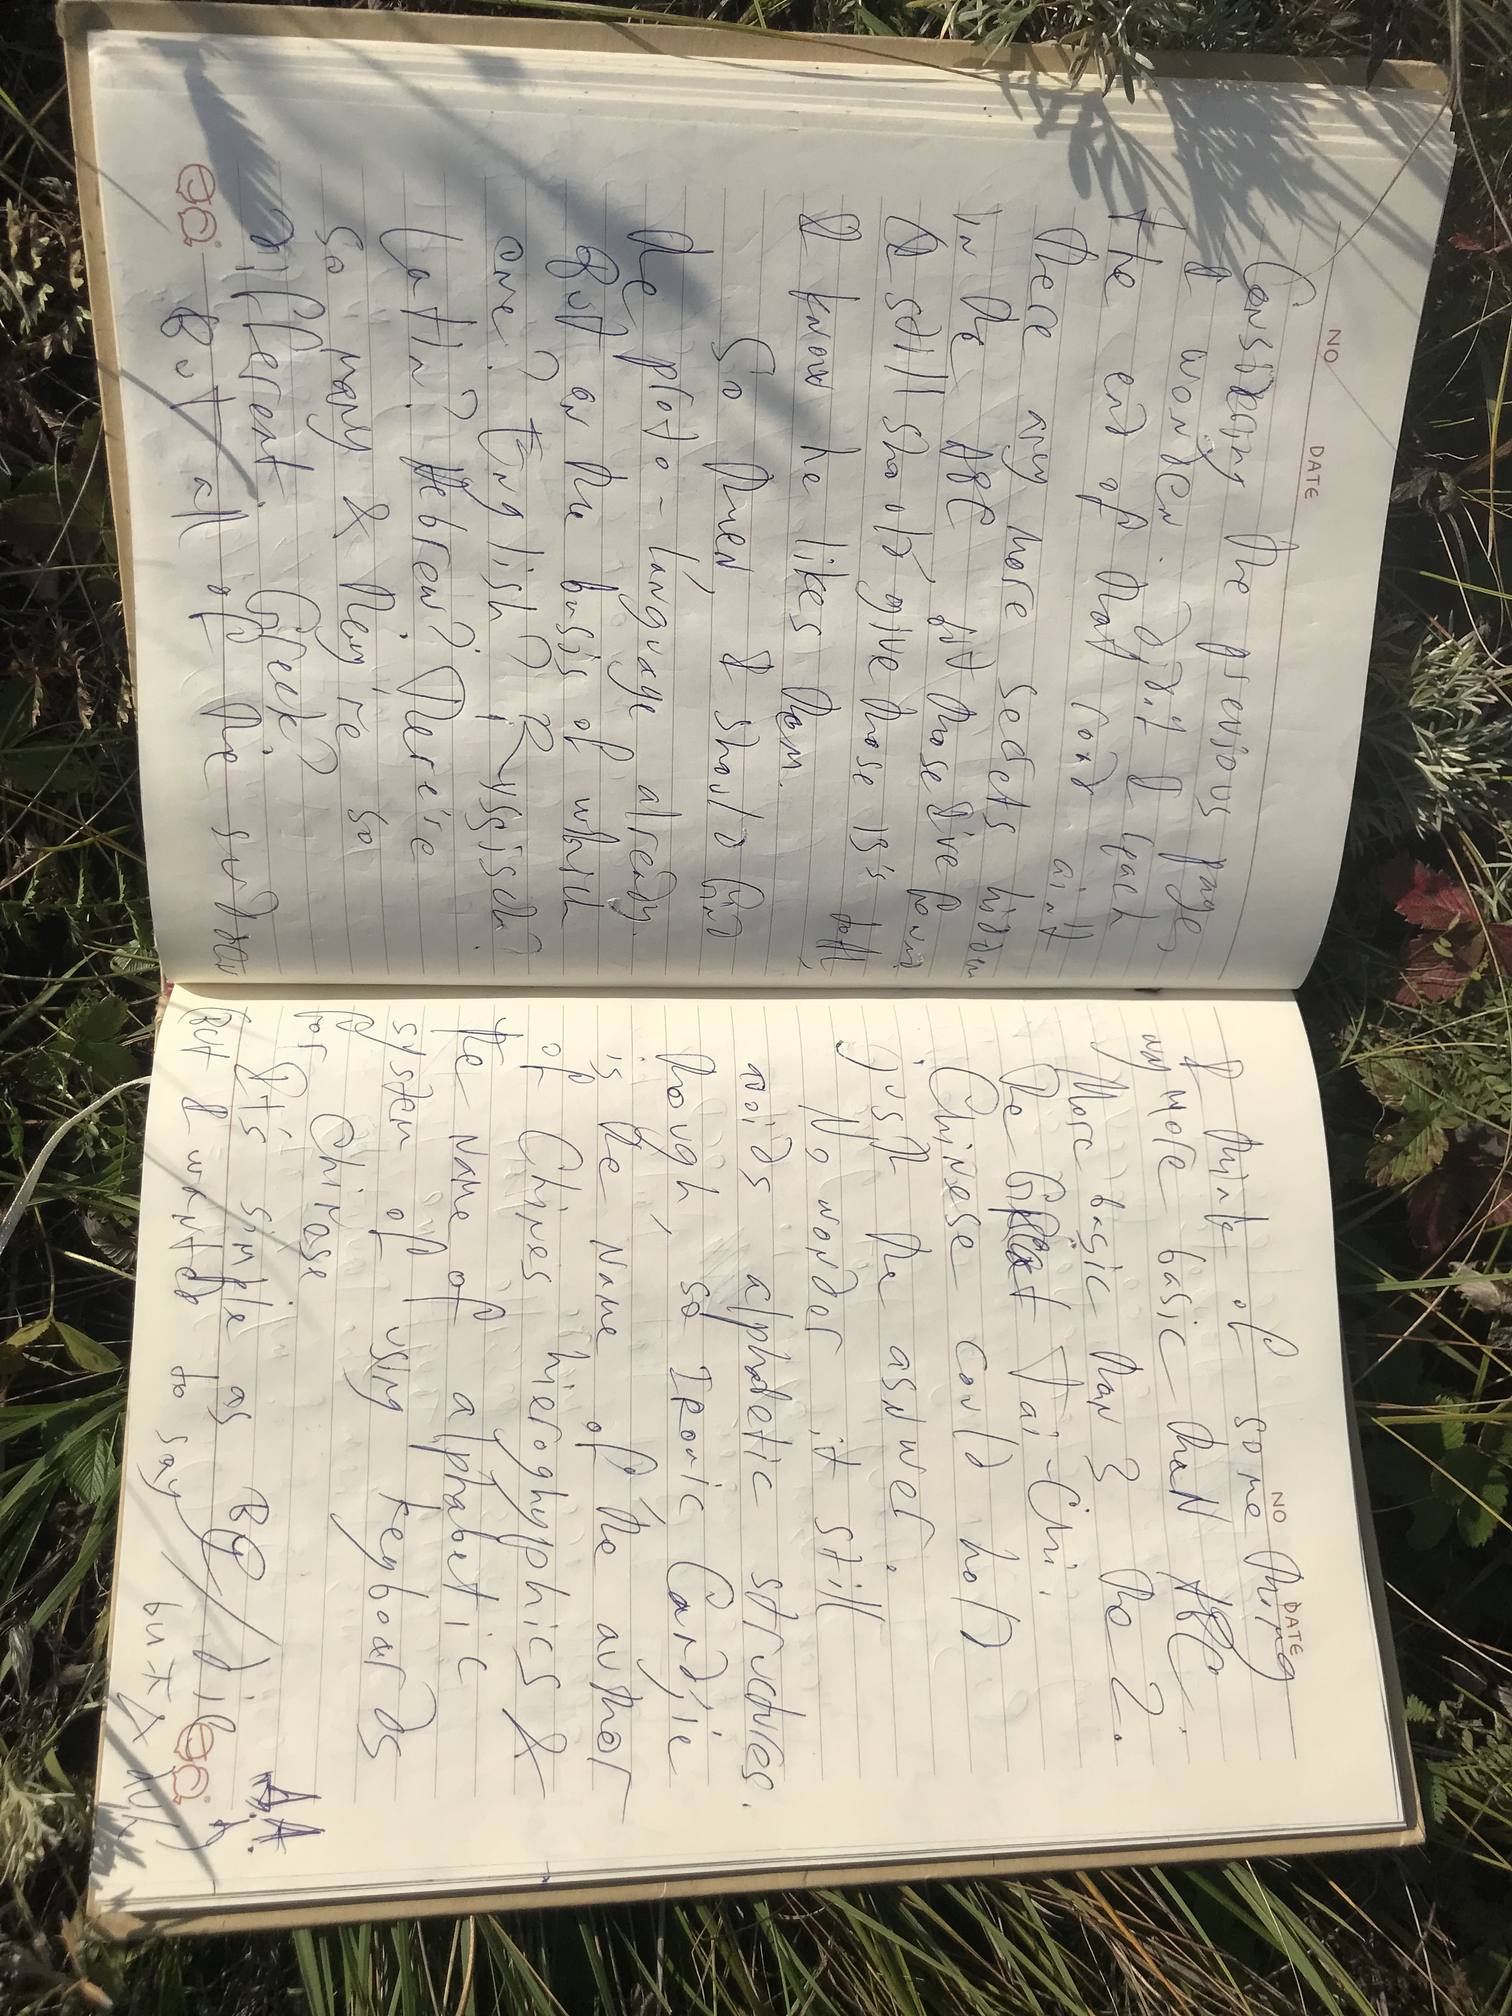 NO
DATE
Considering the previous pages,
I wonder. Did I reach
the end of that road
there any more secrets hidden
ain't
in the ABC
I still should give those 13's
I know he likes them.
So then, I should find
the proto-language already.
But on the basis of which
one? English? Russisch?
Latin? Hebrew? There're
so many & they're so
different. Greek?
But all of the sudden
NO
DATE
I think of something
way more basic than ABC.
More basic than 3 the 2.
The Great Tai-Chi.
Chinese could hold
just the asnwer.
No wonder it still
avoids alphabetic structures.
though, so Ironic Candjie
is the name of the author
of Chines hieroghyphics &
the name of alphabetic
system of using keyboards
for Chinase
It's simple as
But I wanted to say
A.A.